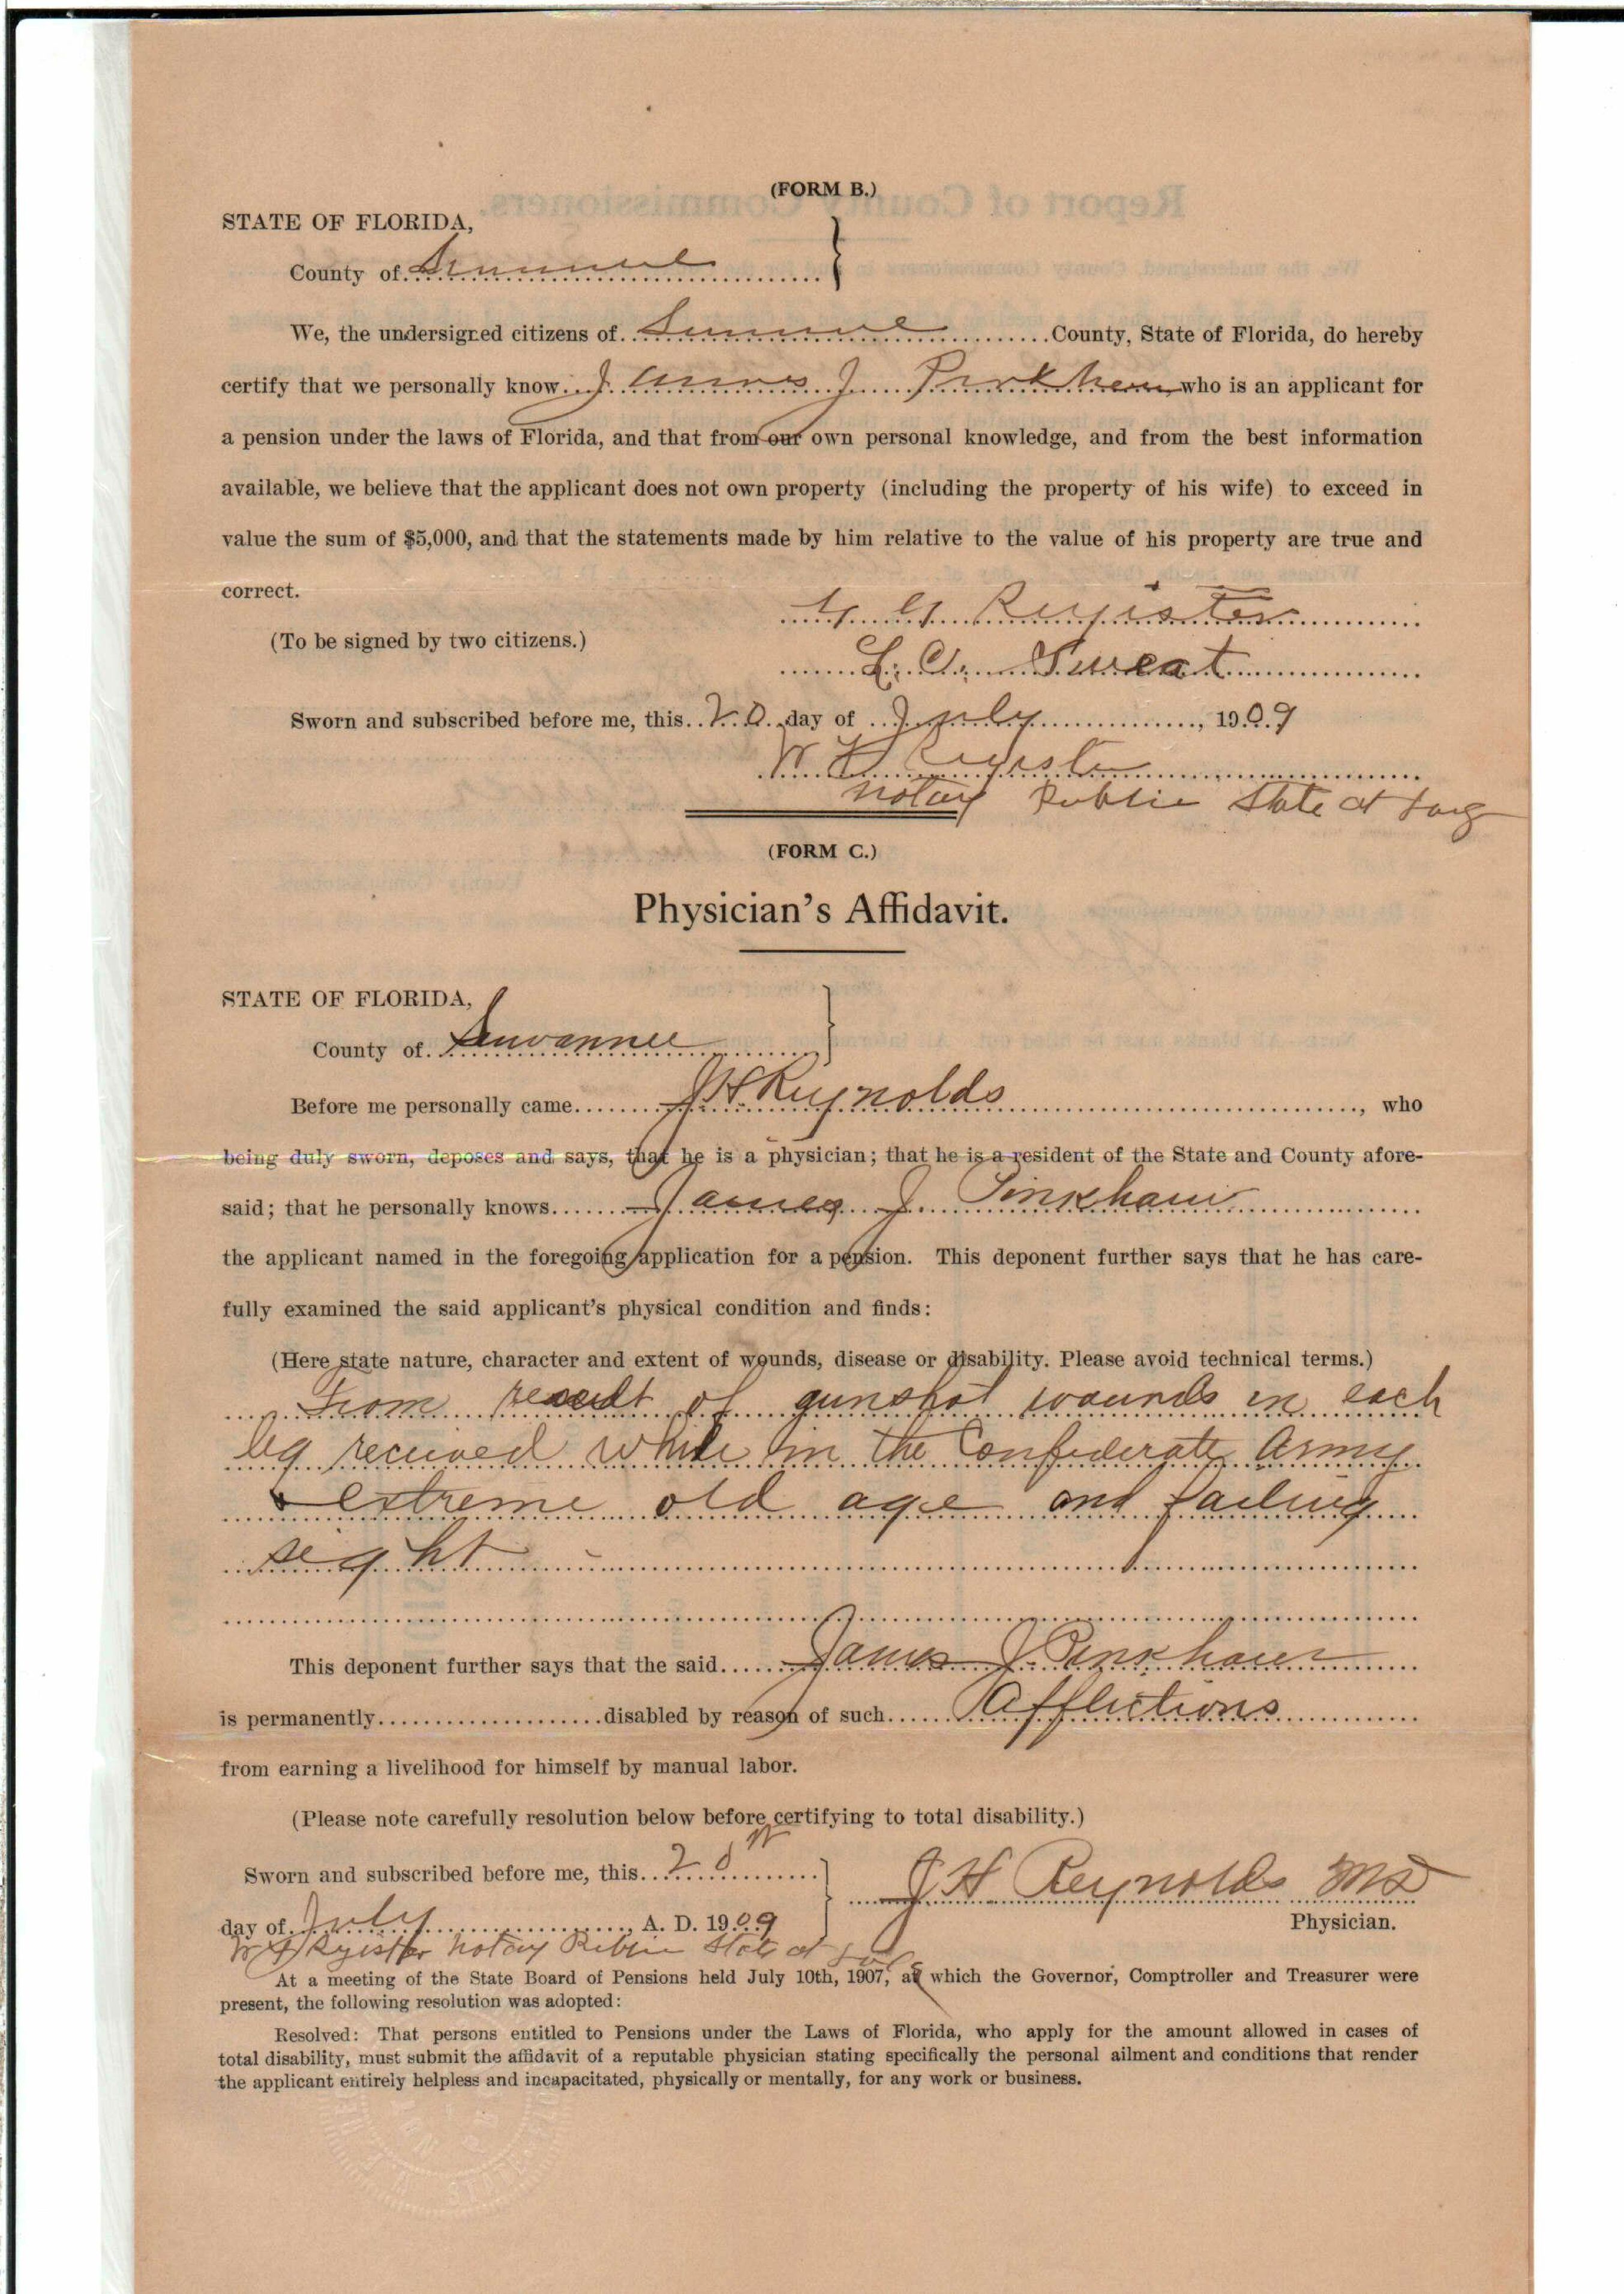 (FORM B.)
STATE OF FLORIDA,
County of Suwannee
We, the undersigned citizens of Suwannee County, State of Florida, do hereby
certify that we personally know James J Pinkham who is an applicant for
a pension under the laws of Florida, and that from our own personal knowledge, and from the best information
available, we believe that the applicant does not own property (including the property of his wife) to exceed in
value the sum of $5,000, and that the statements made by him relative to the value of his property are true and
correct.
Register
(To be signed by two citizens.)
L. C. Sweat
Sworn and subscribed before me, this 20 day of July, 1909
W F Register
Notary Public State at Larg
(FORM C.)
Physician's Affidavit.
STATE OF FLORIDA,
County of Suwannee
Before me personally came J H Reynolds, who
being duly sworn, deposes and says, that he is a physician; that he is a resident of the State and County afore-
said; that he personally knows James J. Pinkham
the applicant named in the foregoing application for a pension. This deponent further says that he has care-
fully examined the said applicant's physical condition and finds:
(Here state nature, character and extent of wounds, disease or disability. Please avoid technical terms.)
From result of gunshot wounds in each
leg received while in the Confederate Army
& extreme old age and failing
sight
This deponent further says that the said James J. Pinkham
is permanently disabled by reason of such Afflictions
from earning a livelihood for himself by manual labor.
(Please note carefully resolution below before certifying to total disability.)
Sworn and subscribed before me, this 20
J H Reynolds MD
day of July, A. D. 1909
Physician.
W F Register Notary Public State at
At a meeting of the State Board of Pensions held July 10th, 1907, at which the Governor, Comptroller and Treasurer were
present, the following resolution was adopted:
Resolved: That persons entitled to Pensions under the Laws of Florida, who apply for the amount allowed in cases of
total disability, must submit the affidavit of a reputable physician stating specifically the personal ailment and conditions that render
the applicant entirely helpless and incapacitated, physically or mentally, for any work or business.